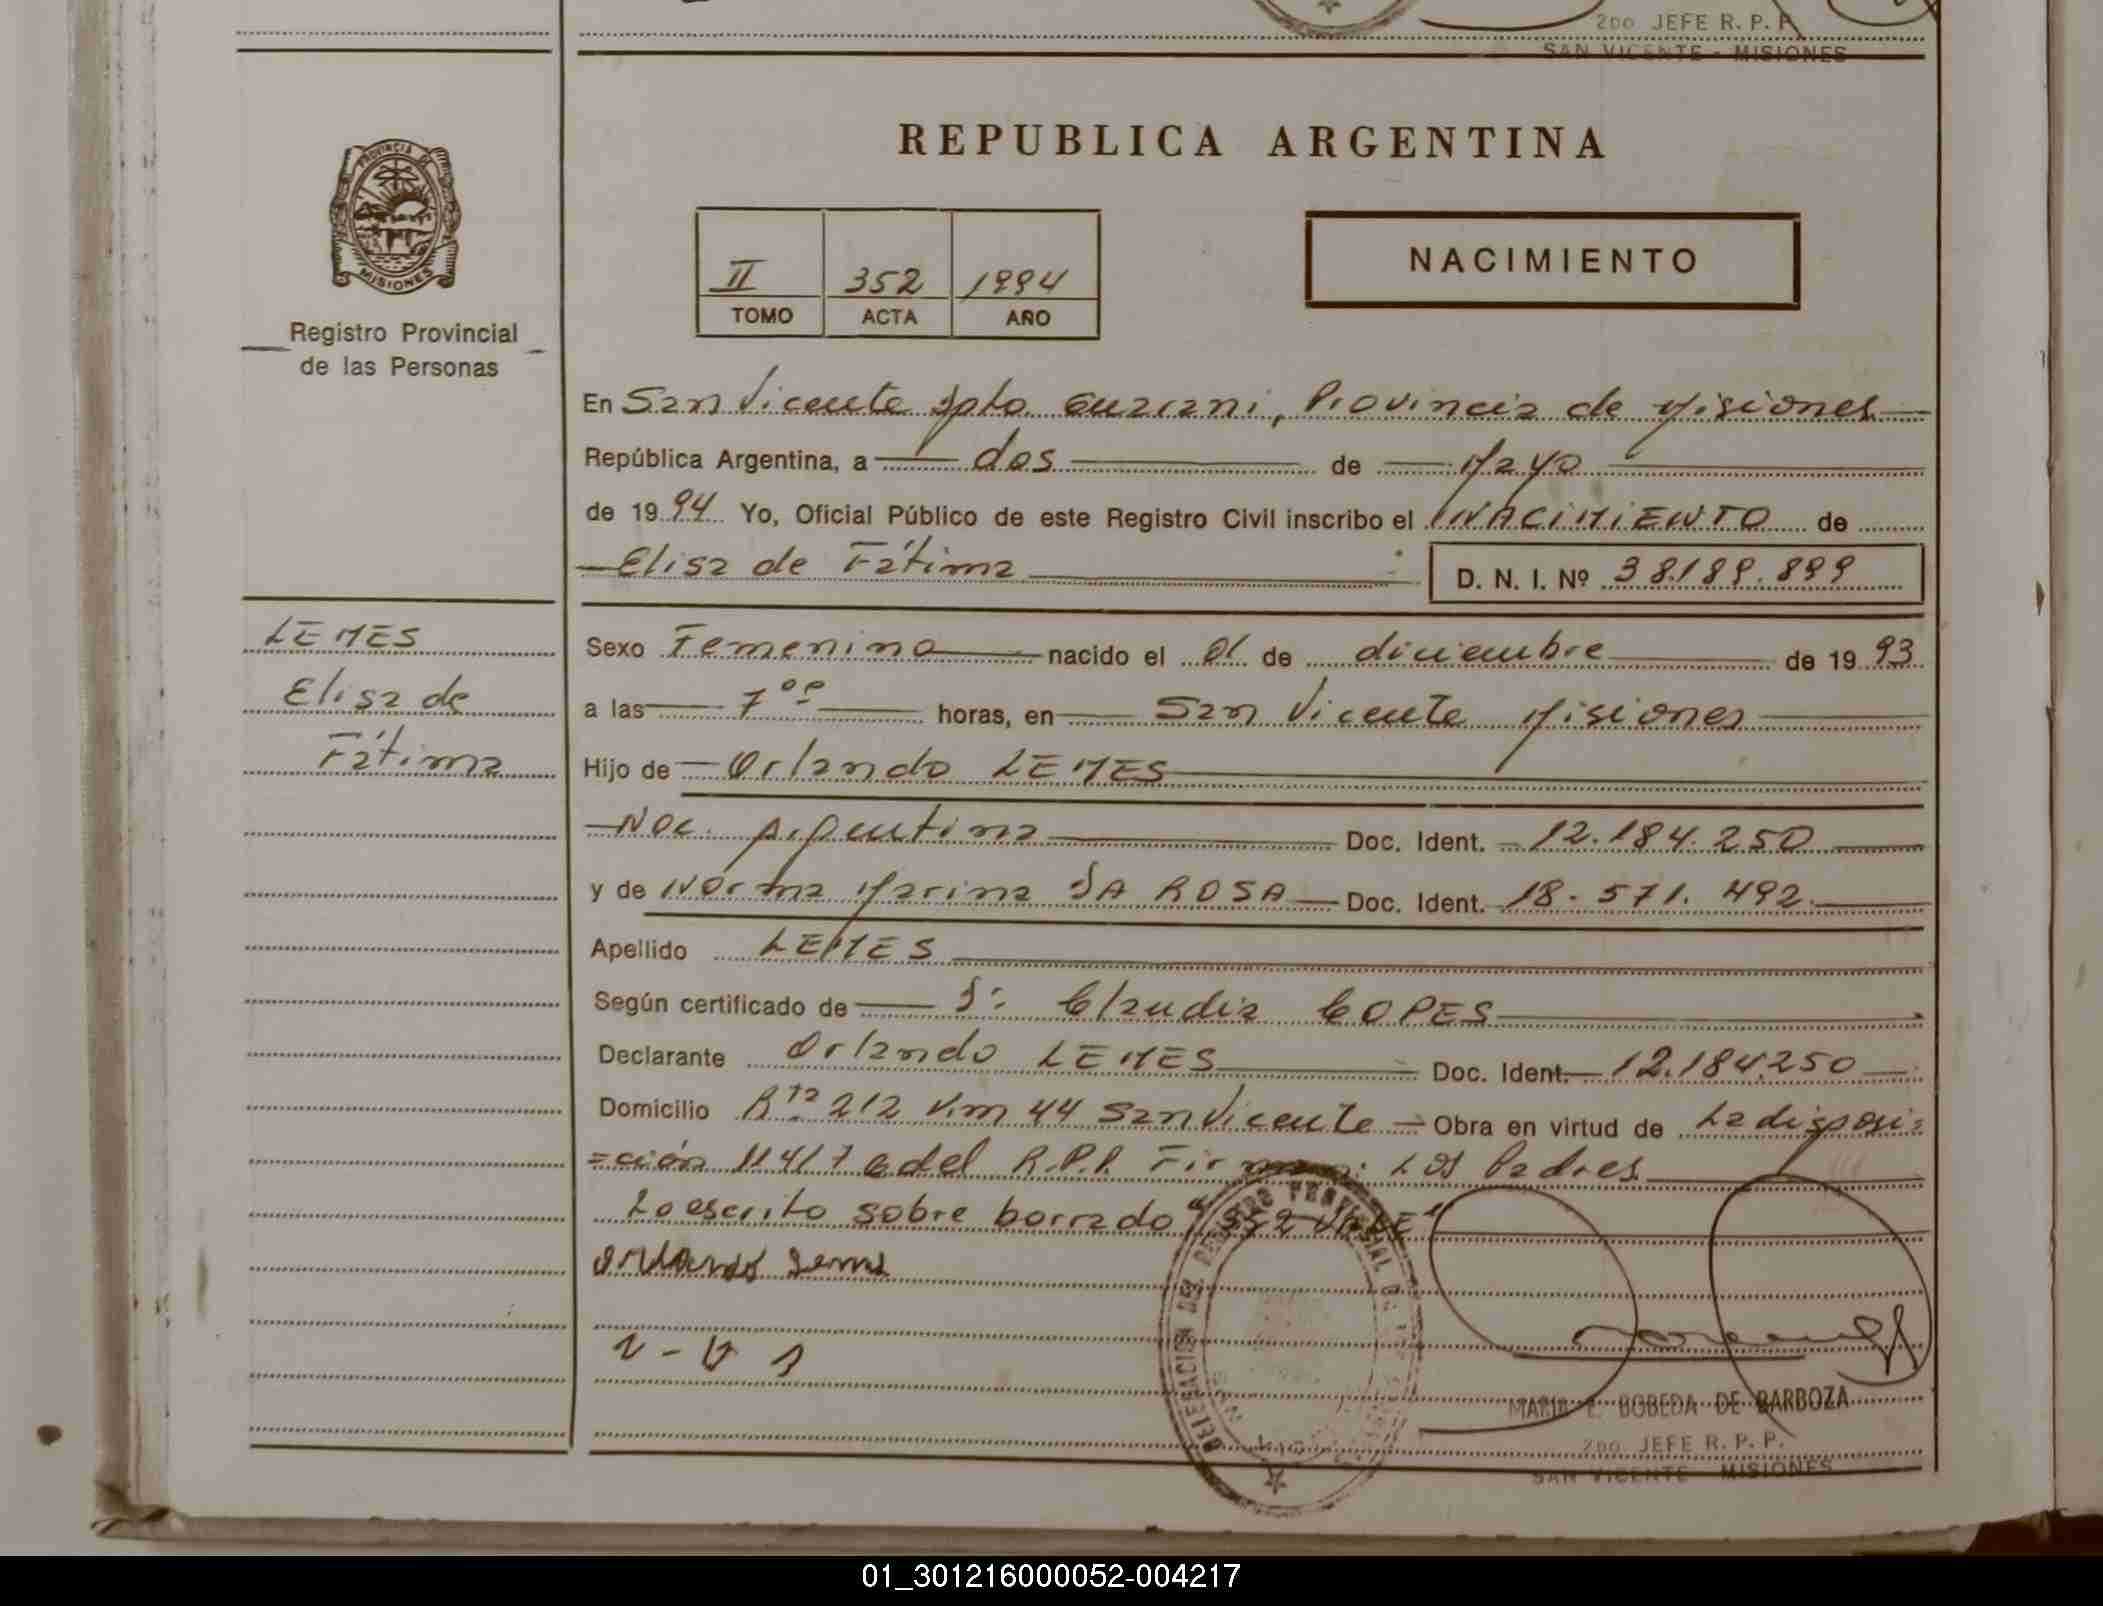 2DO. JEFE R. P. P.
SAN VICENTE - MISIONES
PROVINCIA DE
MISIONES
Registro Provincial
de las Personas
REPUBLICA ARGENTINA
II 352 1994
TOMO ACTA AÑO
NACIMIENTO
En San Vicente Dpto Guarani, Provincia de Misiones
República Argentina, a dos de Mayo
de 1994 Yo, Oficial Público de este Registro Civil inscribo el NACIMIENTO de
Elisa de Fátima D. N. I. Nº 38.189.899
LEMES
Elisa de
Fátima
Sexo Femenino nacido el 01 de diciembre de 1993
a las 7 oo horas, en San Vicente Misiones
Hijo de Orlando LEMES
Nac. Argentina Doc. Ident. 12.184.250
y de Norma Marina DA ROSA Doc. Ident. 18.571.492
Apellido LEMES
Según certificado de Claudia COPES
Declarante Orlando LEMES Doc. Ident. 12.184.250
Domicilio Rta 212 Km 44 San Vicente Obra en virtud de La disposi=
=ción del R.P.P. Firman: Los Padres
Lo escrito sobre borrado "352 VALE"
Orlando Lemes
DELEGACION DEL REGISTRO PROVINCIAL
MARIA E. BOBEDA DE BARBOZA
2DO. JEFE R. P. P.
SAN VICENTE MISIONES
01_301216000052-004217